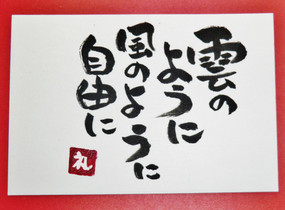 雲の
ように
風のように
自由に
礼